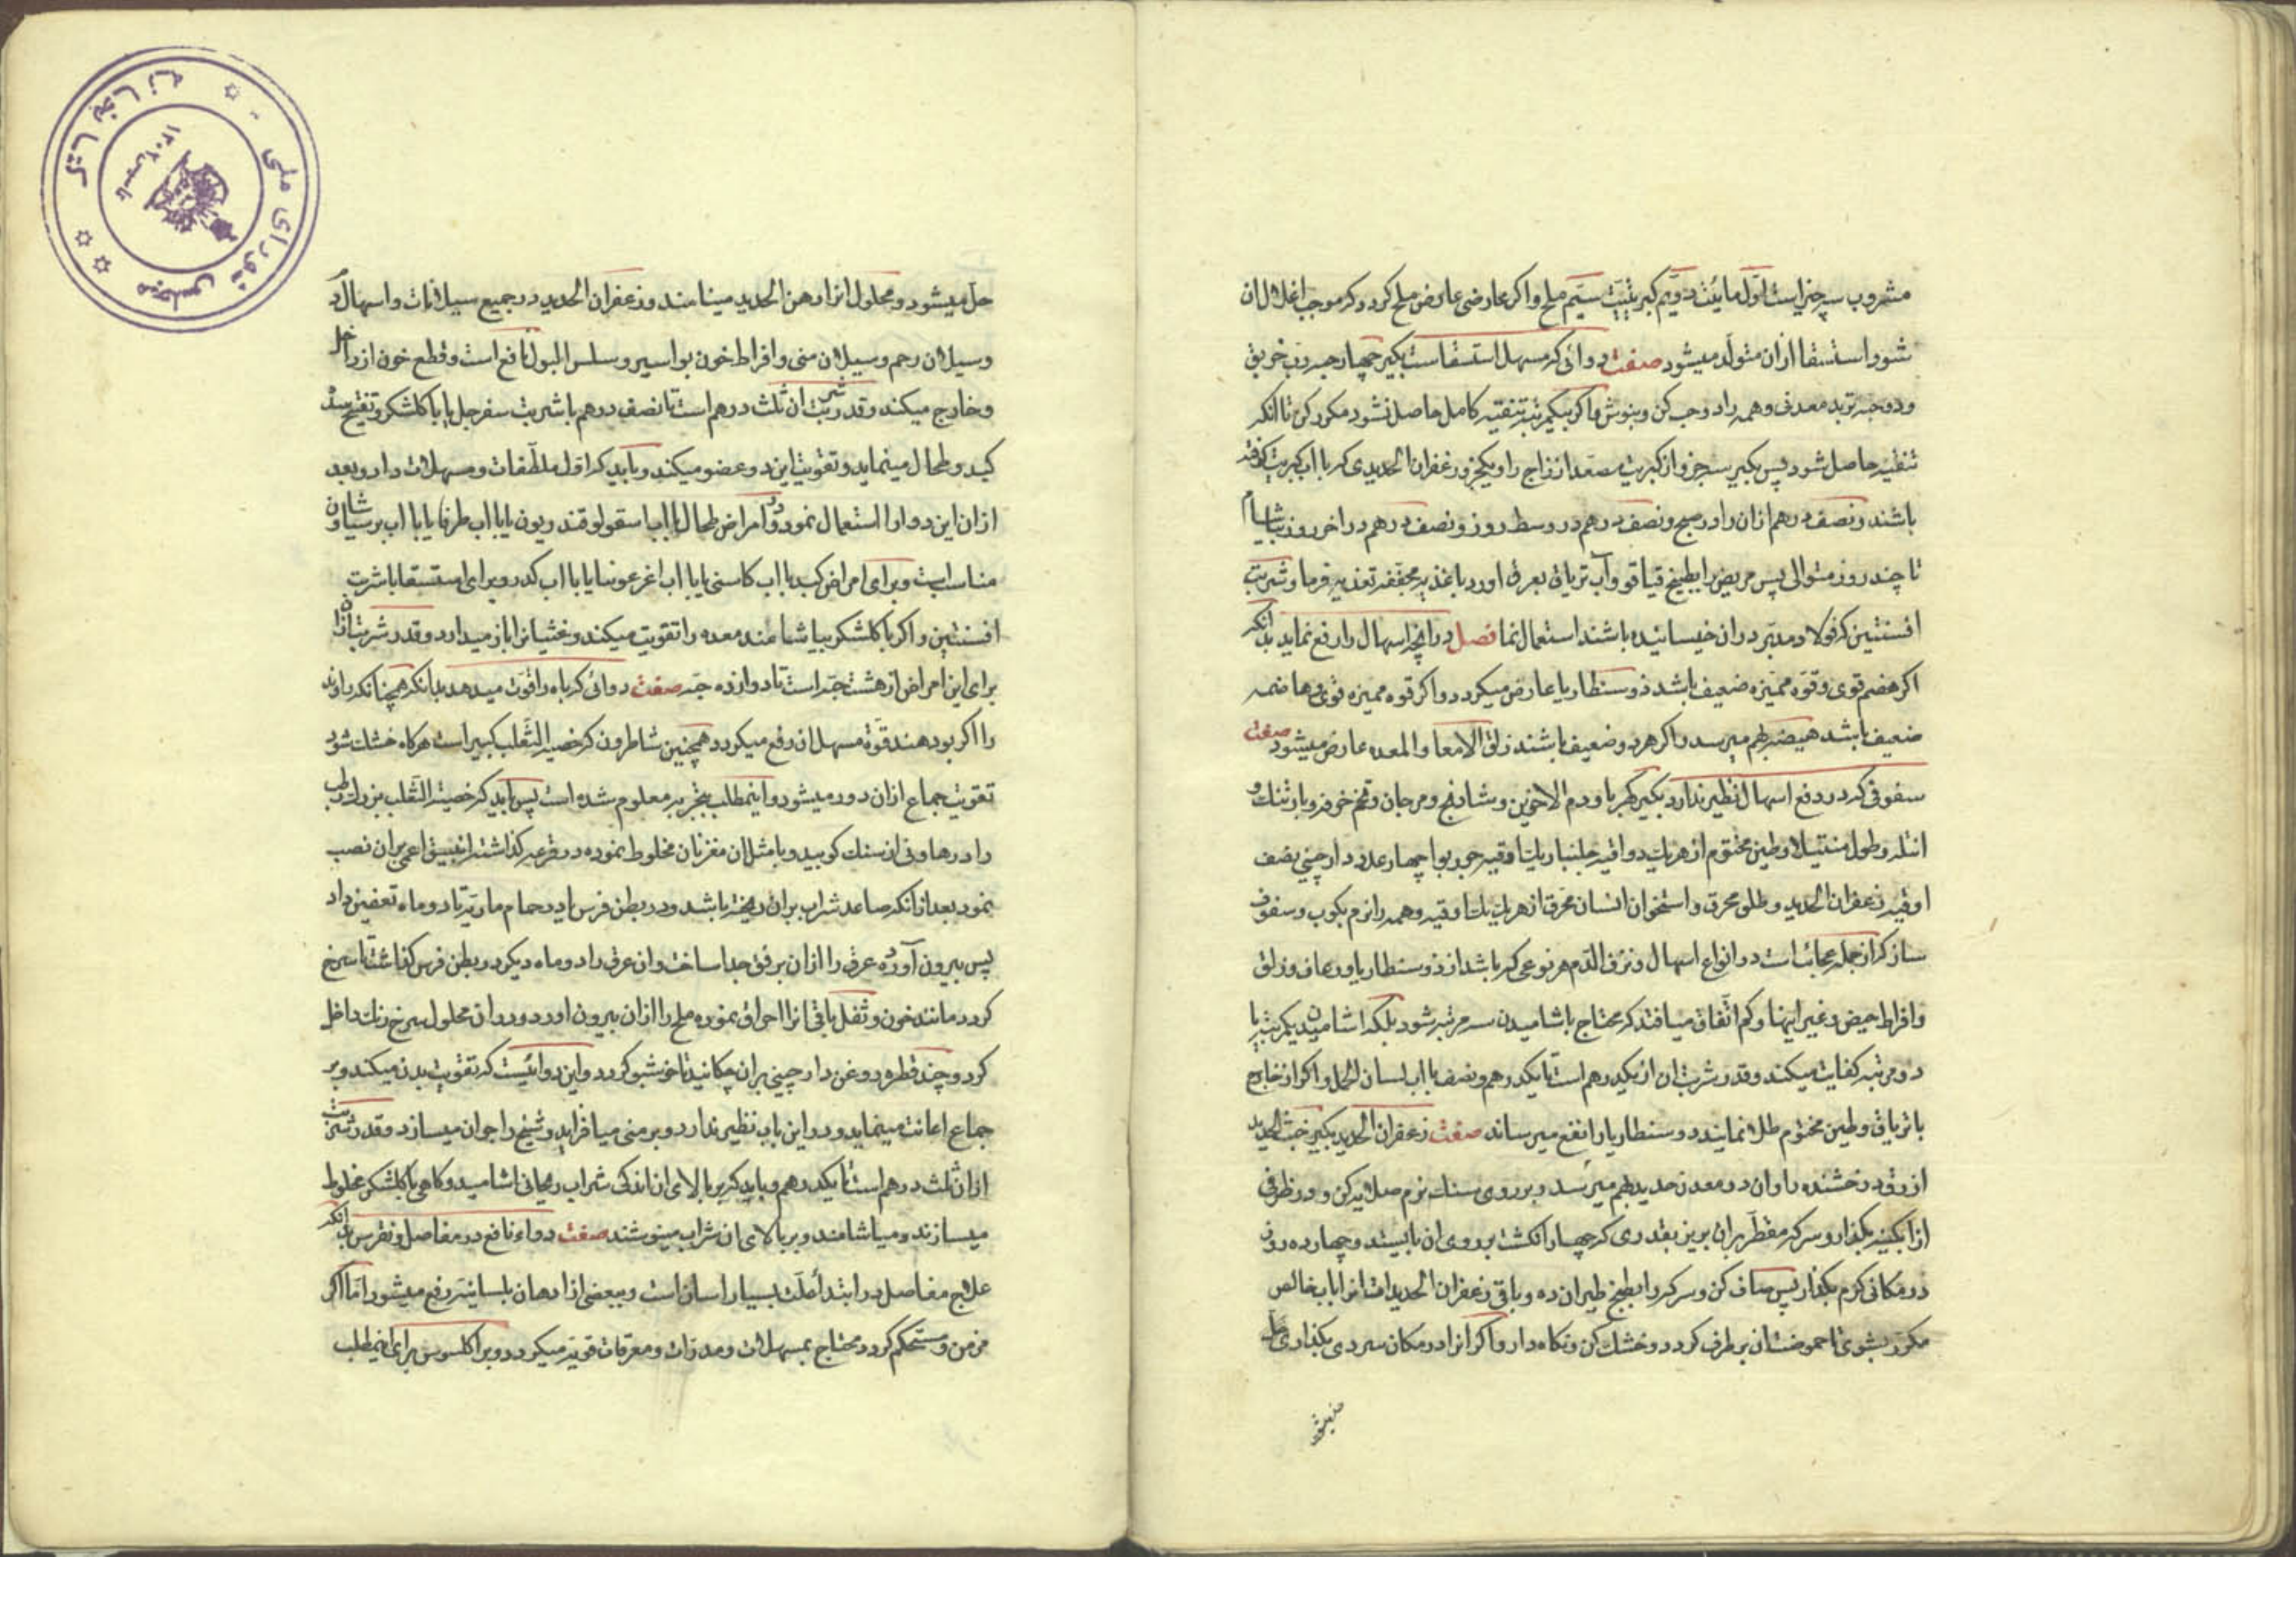 مشروب سه چیز است اول مائیت دویم کبریتیت سیم ملح و اکر عارضی عارض ملح کردد که موجب انحلال ان
شود استسقا ازان متولد میشود صفت دوائی که مسهل استسقاست بکیر چهار حبه رب خربق
و دو حبه تربد معدنی و همه را دو حب کن و بنوش و اکر بیکمرتبه تنقیه کامل حاصل نشود مکرر کن تا انکه
تنقیه حاصل شود پس بکیر سه جزو از کبریت مصعد از زاج را و یکجزو زعفران الحدیدی که با اب کبریت کرفته
باشند و نصف درهم ازان را در صبح و نصف درهم در وسط روز و نصف درهم در اخر روز بیاشام
تا چند روز متوالی پس مریض را بطبیخ قیاقو و آب تریاق بعرق اور و باغذیه مجففه تغذیه فرما و شربت
افسنتین که فولاد مدبر دران خیسانیده باشند استعمال نما فصل در انچه اسهال را رفع نماید بدانکه
اکر هضم قوی و قوه ممیزه ضعیف باشد ذوسنطاریا عارض میکردد و اکر قوه ممیزه قوی و هاضمه
ضعیف باشد هیضه بهم میرسد و اکر هردو ضعیف باشند زلق الامعا والمعده عارض میشود صفت
سفوفی که در دفع اسهال نظیر ندارد بکیر کهربا و دم الاخوین و شادنج و مرجان و تخم خرفه و بارتنک و
انتله و طول منتیلا و طین مختوم از هریک دو اقیه جلنار یک اوقیه جوز بوا چهار عدد دارچینی نصف
اوقیه زعفران الحدید و طلق محرق و استخوان انسان محرق از هریک یک اوقیه و همه را نرم بکوب و سفوف
ساز که از جمله عجائب است در انواع اسهال و نزف الدم هر نوعی که باشد از ذوسنطاریا و رعاف و زلق
و افراط حیض و غیر اینها و کم اتفاق میافتد که محتاج باشامیدن سه مرتبه شود بلکه اشامیدن یکمرتبه یا
دو مرتبه کفایت میکند و قدر شربت ان از یکدرهم است تا یکدرهم و نصف با اب لسان الحمل و اکر از خارج
با تریاق و طین مختوم طلا نمایند دوسنطاریا را نفع میرساند صفت زعفران الحدید بکیر خبث الحدید
ازرق درخشنده را و ان در معدن حدید بهم میرسد و بر روی سنک نرم صلایه کن و در ظرفی
از ابکینه بکذار و سرکه مقطر بران بریز بقدری که چهار انکشت بر روی ان بایستد و چهارده روز
در مکانی کرم بکذار پس صاف کن و سرکه را بطبخ طیران ده و باقی زعفران الحدید است انرا باب خالص
مکرر بشوی تا حموضت ان برطرف کردد و خشک کن و نکاه دار و اکر انرا در مکان سردی بکذاری حل
میشود
حل میشود و محلول انرا دهن الحدید مینامند و زعفران الحدید در جمیع سیلانات و اسهال
و سیلان رحم و سیلان منی و افراط خون بواسیر و سلس البول نافع است و قطع خون از داخل
و خارج میکند و قدر شربت ان ثلث درهم است تا نصف درهم با شربت سفرجل یا با کلشکر و تفتیح سده
کبد و طحال مینماید و تقویت این دو عضو میکند و باید که اول ملطفات و مسهلات داد و بعد
ازان این دوا را استعمال نمود و در امراض طحال با اب اسقولوقندریون یا با اب طرفا یا با اب برسیاوشان
مناسبست و برای امراض کبد با اب کاسنی یا با اب اغرعونیا یا با اب کدر و برای استسقا با شربت
افسنتین و اکر با کلشکر بیاشامند معده را تقویت میکند و غشیانرا باز میدارد و قدر شربت ان
برای این امراض از هشت حبه است تا دوازده حبه صفت دوائی که باه را قوت میدهد بدانکه همچنانکه راوند
را اکر بو دهند قوة مسهله ان رفع میکردد همچنین شاطریون که خصیة الثعلب کبیر است هرکاه خشک شود
تقویت جماع ازان دور میشود و اینمطلب بتجربه معلوم شده است پس باید که خصیة الثعلب بزرک رطب
را در هاونی از سنک کوبید و با مثل ان مغز نان مخلوط نموده در قرعه کذاشته انبیق اعمی بران نصب
نمود بعد از انکه صاعد شراب بران ریخته باشد و در بطن فرس یا در حمام ماریه تا دو ماه تعفین داد
پس بیرون آورده عرق را ازان برفق جدا ساخت و ان عرق را دو ماه دیکر در بطن فرس کذاشت تا سرخ
کردد مانند خون و ثفل باقی انرا احراق نموده ملح را ازان بیرون اورد و در ان محلول سرخ رنک داخل
کرد و چند قطره روغن دارچینی بران چکانید تا خوشبو کردد و این دوائیست که تقویت بدن میکند و بر
جماع اعانت مینماید و در این باب نظیر ندارد و بر منی میافزاید و شیخ را جوان میسازد و قدر شربت
ازان ثلث درهم است تا یکدرهم و باید که بر بالای ان اندکی شراب ریحانی اشامید و کاهی با کلشکر مخلوط
میسازند و میاشامند و بر بالای ان شراب مینوشند صفت دواء نافع در مفاصل و نقرس بدانکه
علاج مفاصل در ابتداء علت بسیار اسان است و ببعضی از ادهان بلسانیه رفع میشود اما اکر
مزمن و مستحکم کردد محتاج بمسهلات و مدرات و معرقات قویه میکردد و براکلسوس برای اینمطلب
کتابخانه مجلس شورای ملی
تاسیس ۱۳۰۲